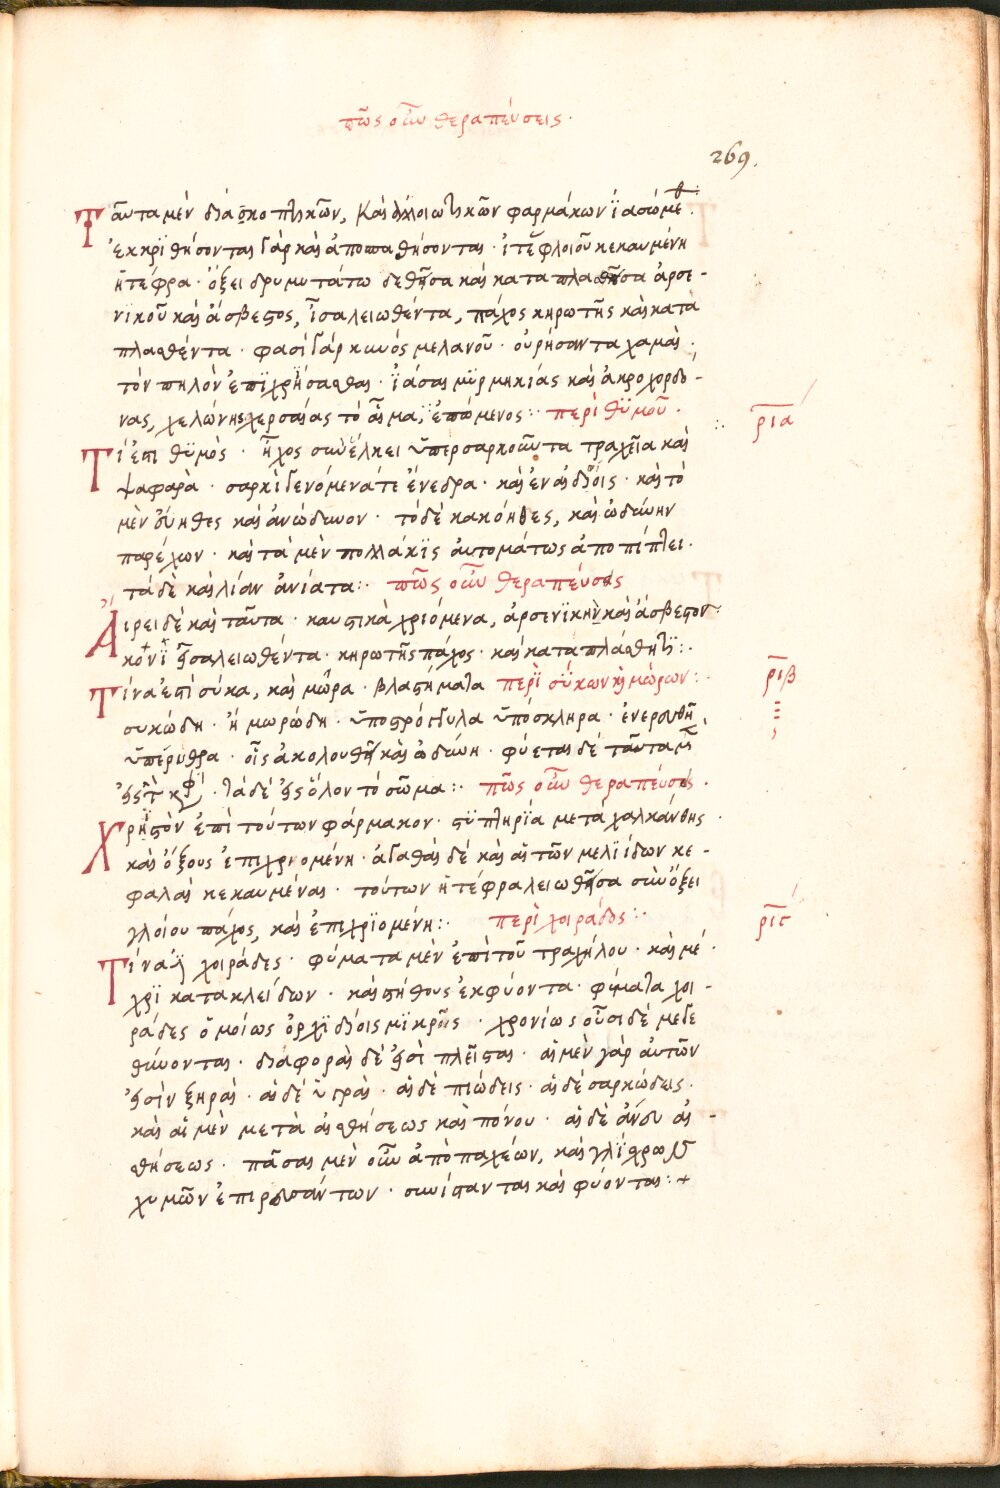 πῶς οὖν θεραπεύσεις·
269.
Ταῦτα μὲν διὰ σκοπτικῶν, καὶ ἀλλοιωτικῶν φαρμάκων ἰασώμεθα·
ἐκκρϊθήσονται γὰρ καὶ ἀποπαθήσονται· ἰτέας φλοιοῦ κεκαυμένη
ἡ τέφρα· ὄξει δρυμυτάτω δεθῆσα καὶ καταπλασθῆσα ἀρσε-
νϊκοῦ καὶ ἀσβεστος, ἶσα λειωθέντα, πάχος κηρωτῆς καὶ κατα
πλασθέντα· φασὶ γὰρ κυνός μελανοῦ· οὐρήσαντα χαμαὶ·
τὸν πηλὸν ἐπϊχρῆσασθαι· ϊάσαι μϋρμηκίας καὶ ἀκροχορδό-
νας, χελώνης χερσαίας τὸ αἷμα, ἐπώμενος:· περὶ θϋμοῦ·
ρια
Τί ἐστι θϋμὸς· ἦχος συνέλκει ὑπερσαρκοῦντα τραχεῖα καὶ
ψαφαρὰ· σαρκὶ γενόμενά τε ἕνεδρα· καὶ ἐν αἰδοίοις· καὶ τὸ
μὲν εὔηθες καὶ ἀνώδυνον· τὸ δὲ κακόηθες, καὶ ὠδύνην
παρέχων· καὶ τὰ μὲν πολλάκϊς αὐτομάτως ἀποπίπτει·
τὰ δὲ καὶ λίαν ἀνίατα:· πῶς οὖν θεραπεύσεις
Αἱρει δὲ καὶ ταῦτα· καυστικὰ χριόμενα, ἀρσενϊκὴν καὶ ἀσβεστον
κοτνϊ ἶσα λειωθέντα· κηρωτῆς πάχος· καὶ καταπλάσθητϊ:·
Τίνα ἐστὶ σύκα, καὶ μῶρα· βλαστήματα περϊ σύκων κὶ μώρων:·
ριβ
συκώδη· ἢ μωρώδη· ὑποστρόγγυλα ὑπόσκληρα· ἐνερευθῆ
ὑπέρυθρα· οἷς ἀκολουθῆ καὶ ὠδύνη· φύεται δὲ ταῦτα
τὰ δὲ εἰς ὅλον τὸ σῶμα:· πῶς οὖν θεραπεύσεις·
Χρηστὸν ἐπὶ τούτων φάρμακον· στϋπτηρία μετὰ χαλκάνθης
καὶ ὄξους ἐπιχριομένη· ἀγαθαὶ δὲ καὶ αἱ τῶν μελϊίδων κε-
φαλαὶ κεκαυμέναι· τούτων ἡ τέφρα λειωθῆσα σὺν ὄξει
γλοίου πάχος, καὶ ἐπιχρϊομένη:· περὶ χοιράδος:·
ριϛ
Τίνα χοιράδες· φύματα μὲν ἐπὶ τοῦ τραχήλου· καὶ μέ-
χρϊ κατακλείδων· καὶ στήθους ἐκφύοντα· φύματα χοι-
ράδες ὁμοίως ὀρχϊδίοις μϊκροῖς· χρονίως οὖσι δὲ μεγε
θύνονται· διαφοραὶ δέ εἰσὶ πλεῖσται· αἱ μὲν γὰρ αὐτῶν
εἰσὶν ξηραὶ· αἱ δὲ ὑγραὶ· αἱ δὲ πιώδεις· αἱ δὲ σαρκώδεις·
καὶ αἱ μὲν μετὰ αἰσθήσεως καὶ πόνου· αἱ δὲ ἄνευ αἰ-
σθήσεως· πᾶσαι μὲν οὖν ἀπὸ παχέων, καὶ γλϊσχρων
χυμῶν ἐπιρευσάντων· συνίστανται καὶ φύονται:+